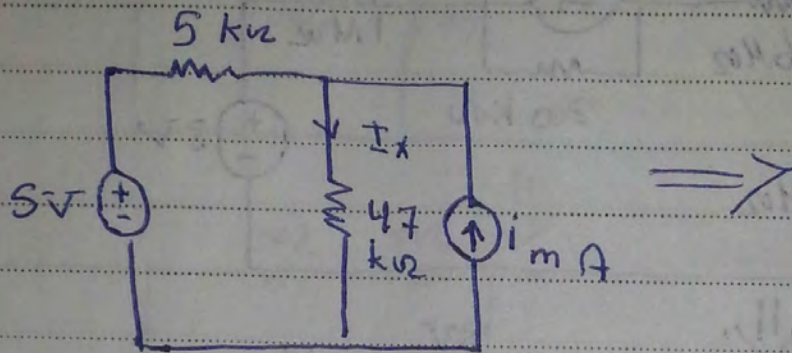 5 kΩ
Ix
5V
+
-
47
kΩ
i mA